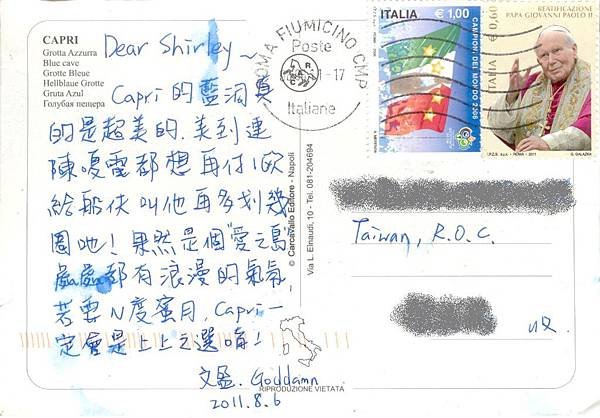 CAPRI
Grotta Azzurra
Blue cave
Grotte Bleue
Hellblaue Grotte
Gruta Azul
Голубая пещера
Dear Shirley~
Capri的藍洞真
的是超美的,美到連
陳嗄電都想再付1次
給船伕叫他再多划幾
圈吔!果然是個"愛之島"
處處都有浪漫的氣氛,
若要N度蜜月,Capri一
定會是上上之選唷!
Goddamn
2011.8.6
© Carcavallo Editore - Napoli
Via L. Einaudi, 10 - Tel. 081-204694
RIPRODUZIONE VIETATA
ROMA FIUMICINO CMP
Poste
1-17
Italiane
ITALIA €1,00
CAMPIONI DEL MONDO 2006
€ 0,60
BEATIFICAZIONE
PAPA GIOVANNI PAOLO II
I.P.Z.S. S.p.A. - ROMA - 2011
G. GALAZKA
Taiwan, R.O.C.
收